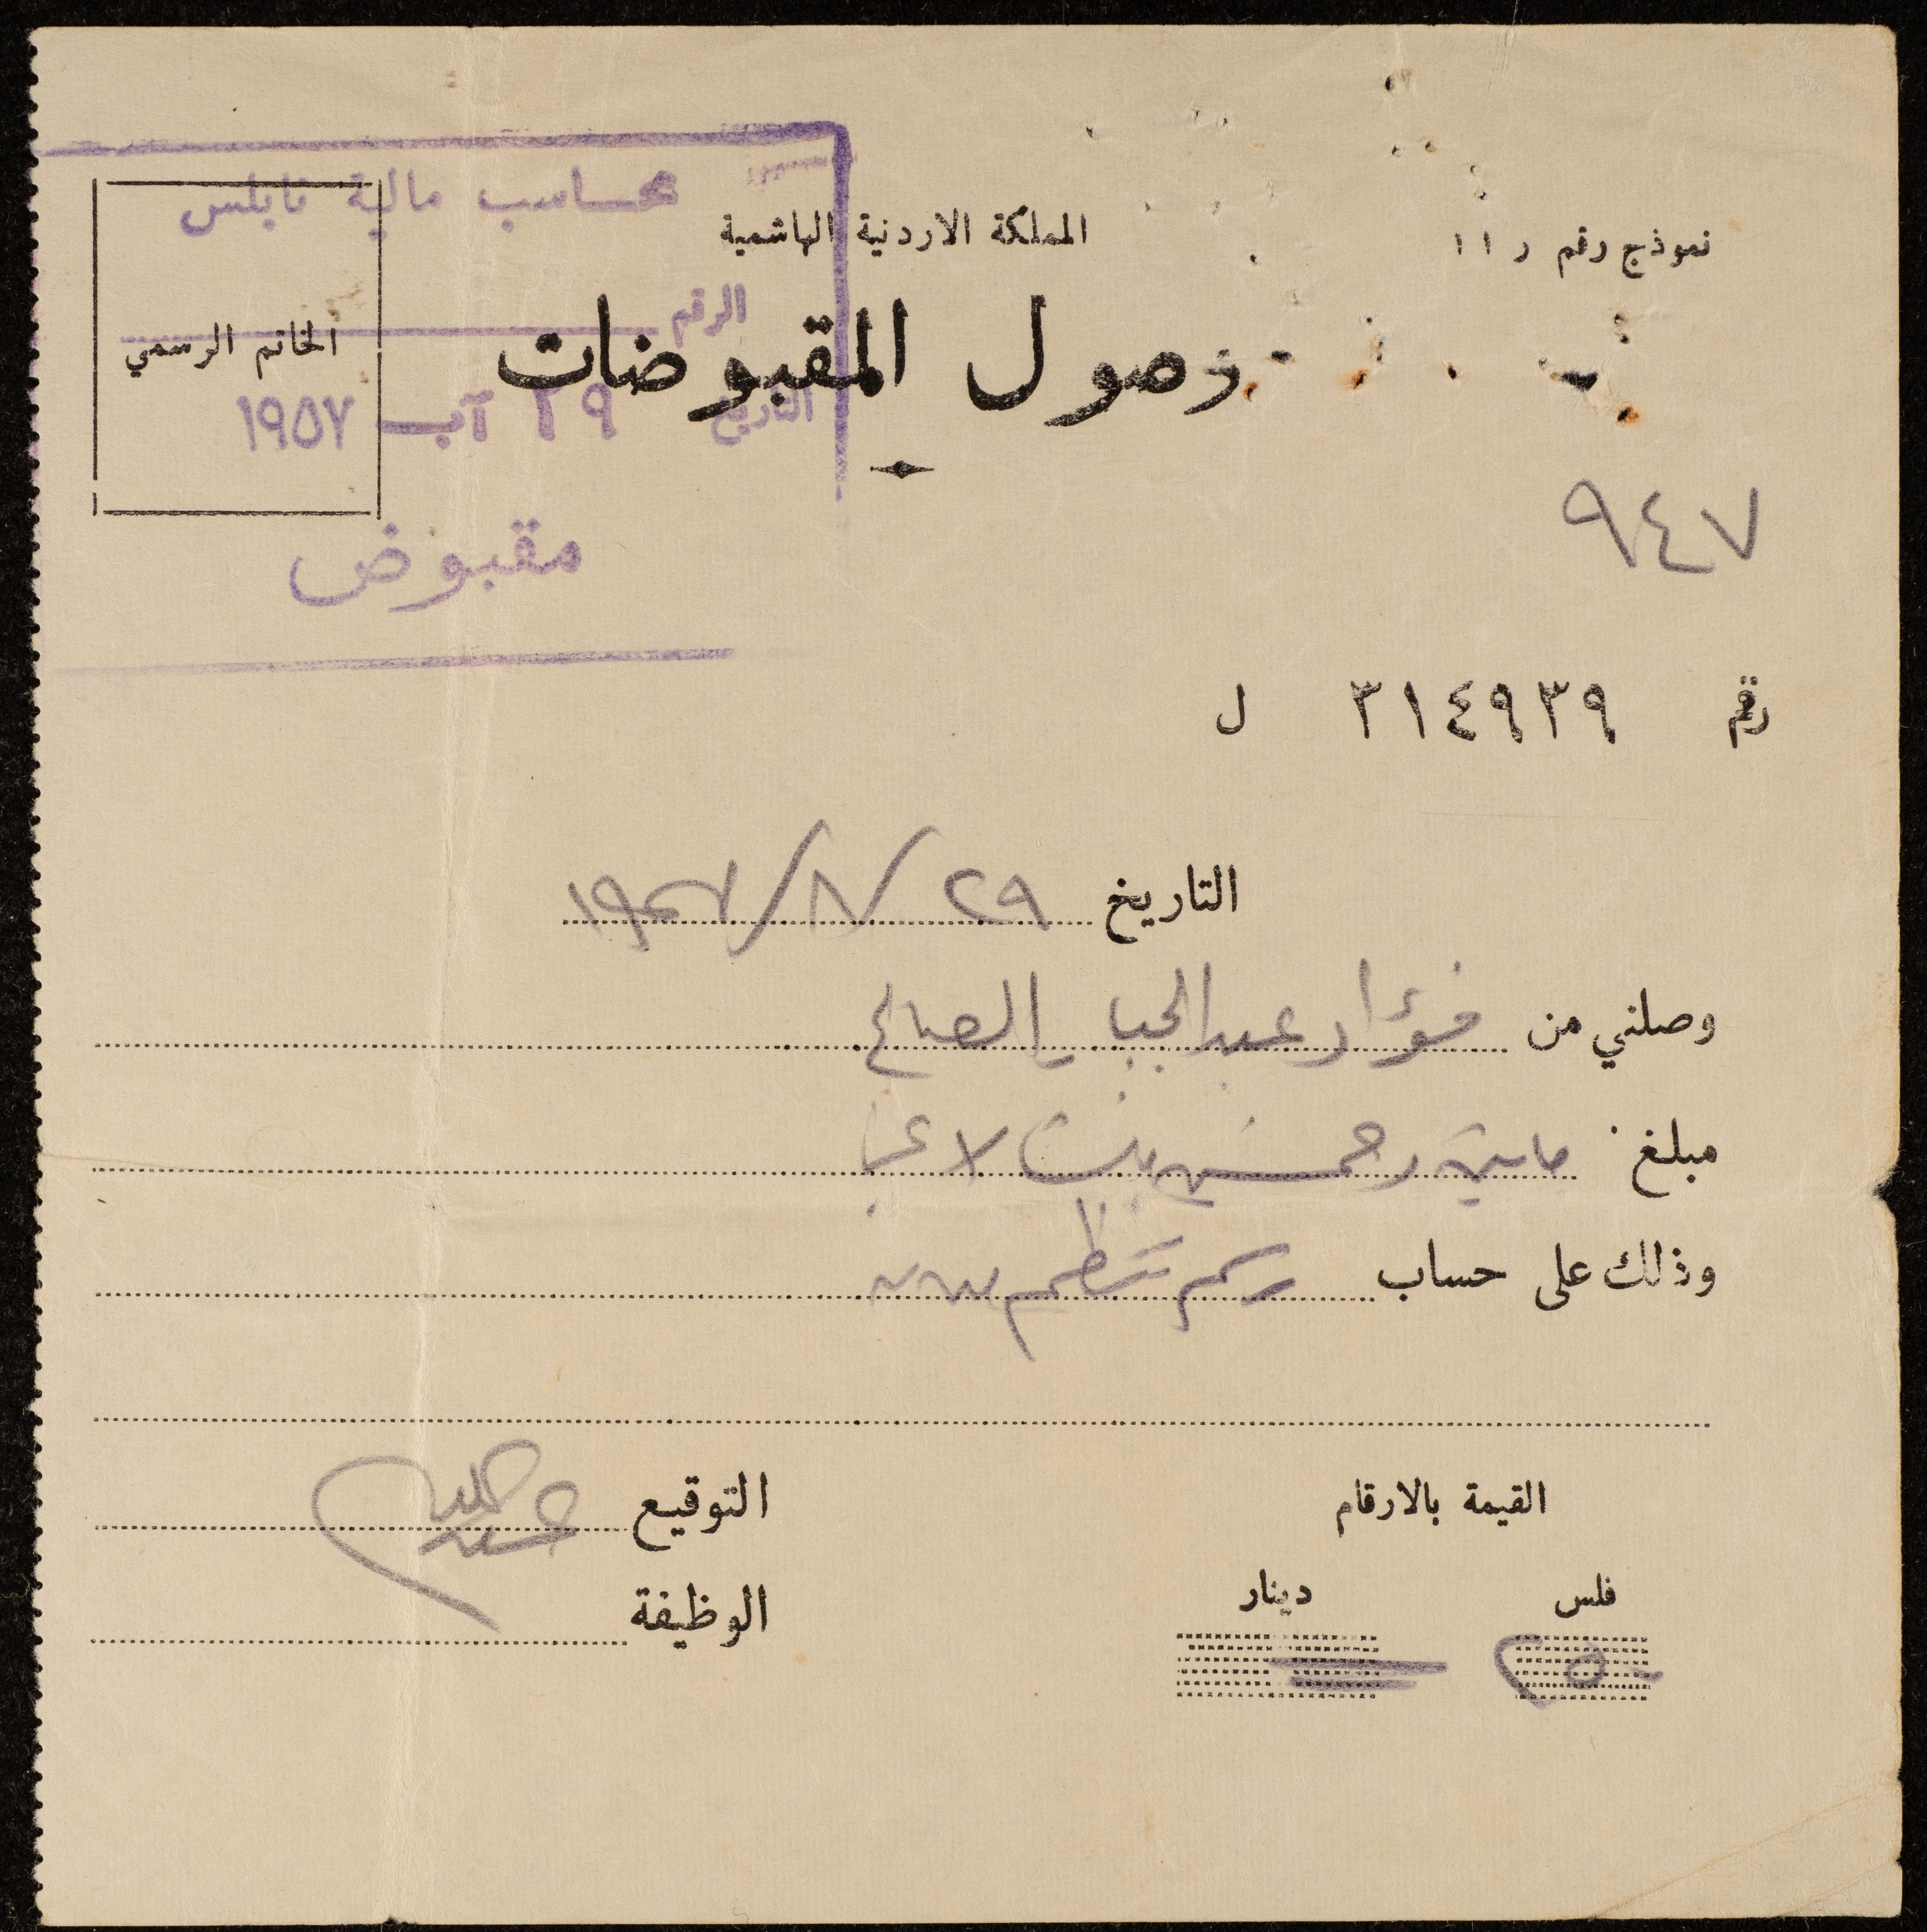 محاسب مالية نابلس
نموذج رقم ر ١١
المملكة الاردنية الهاشمية
الرقم
الخاتم الرسمي
وصول المقبوضات
التاريخ ٢٩ آب ١٩٥٧
٩٤٧
مقبوض
رقم ٣١٤٩٣٩ ل
التاريخ ٢٩/٨/١٩٥٧
وصلني من فؤاد عبد الجبار الصالح
مبلغ مايتين وخمسين فلسا لا غير
وذلك على حساب رسم تنظيم
القيمة بالارقام
التوقيع
فلس دينار
الوظيفة
٢٥٠